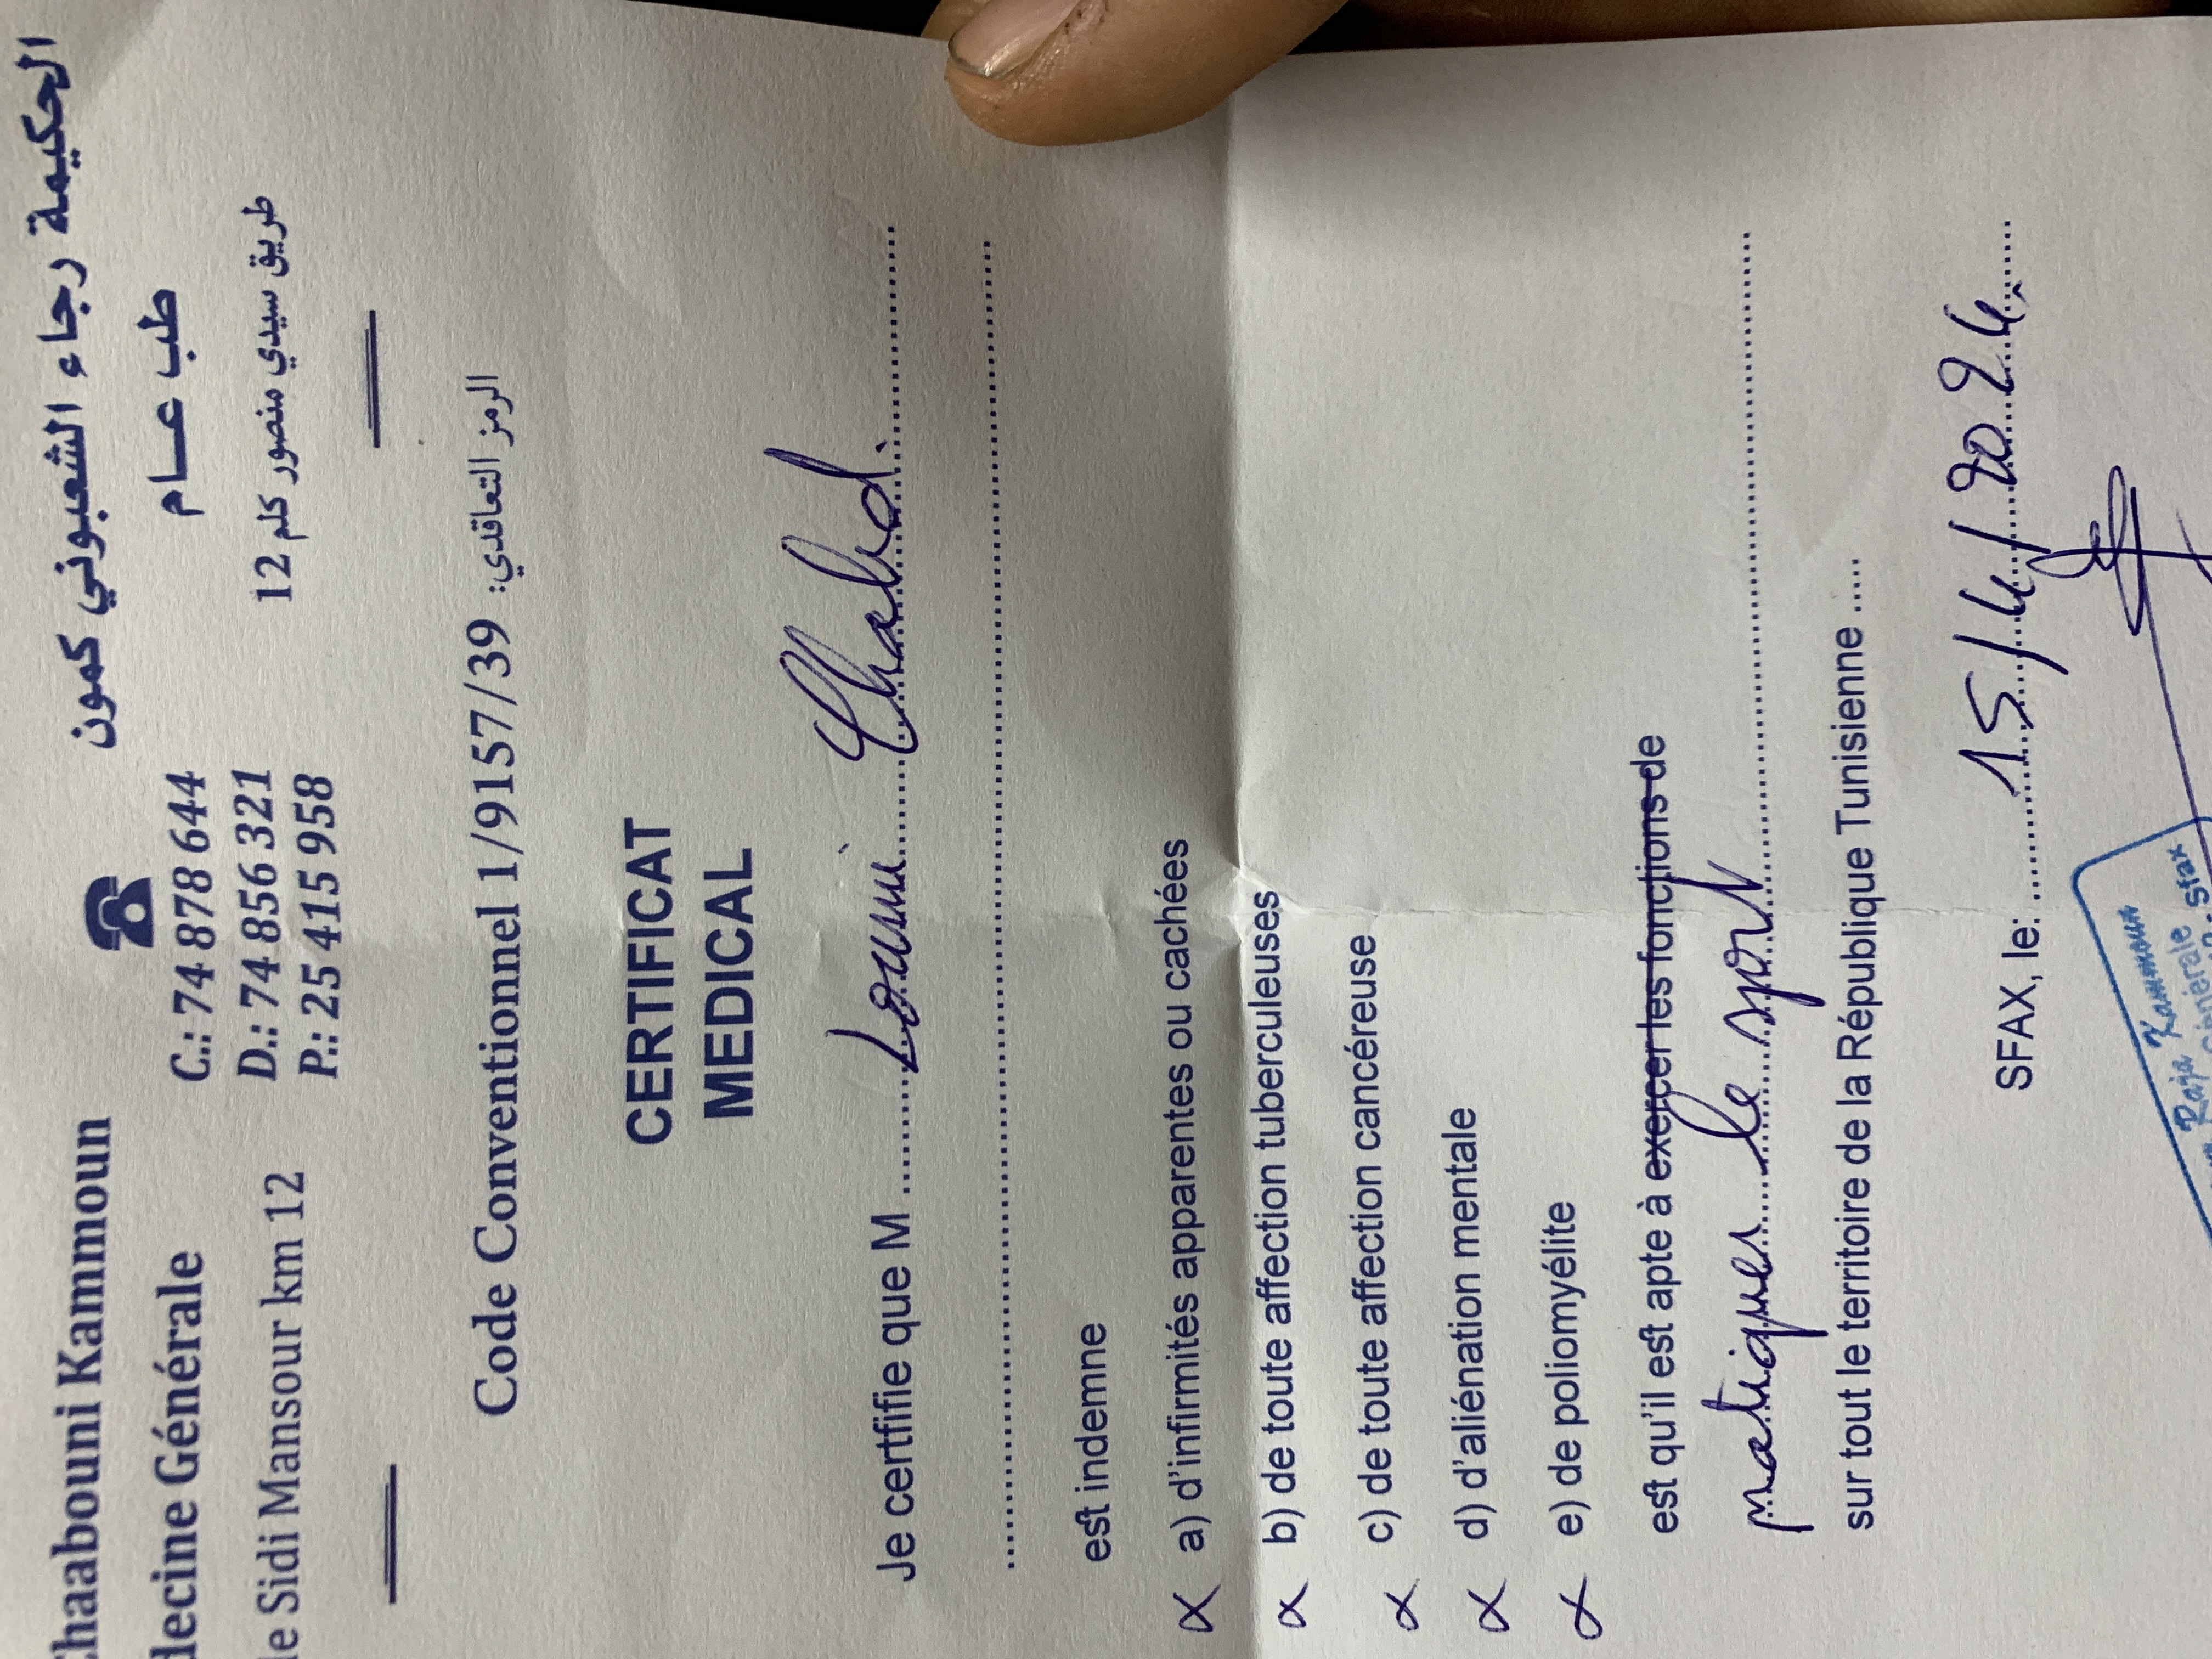 Chaabouni Kammoun
decine Générale
de Sidi Mansour km 12
C.: 74 878 644
D.: 74 856 321
P.: 25 415 958
الحكيمة رجاء الشعبوني كمون
طب عــام
طريق سيدي منصور كلم 12
Code Conventionnel 1/9157/39 الرمز التعاقدي:
CERTIFICAT
MEDICAL
Je certifie que M Loumi Chahed
est indemne
α a) d'infirmités apparentes ou cachées
α b) de toute affection tuberculeuses
α c) de toute affection cancéreuse
α d) d'aliénation mentale
α e) de poliomyélite
est qu'il est apte à exercer les fonctions de
pratiquer le sport
sur tout le territoire de la République Tunisienne .....
SFAX, le: 15/4/2024
Raja Kammoun
Générale
Sfax